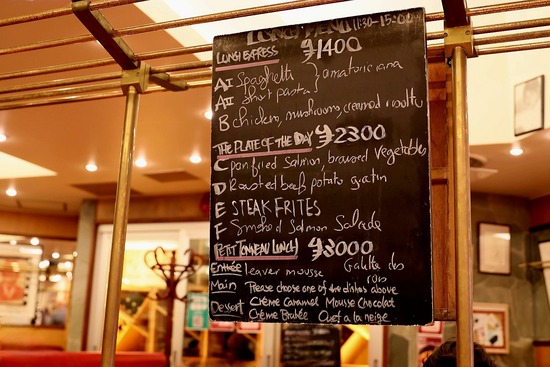 LUNCH MENU 11:30-15:00
LUNCH EXPRESS ¥1400
AI Spaghetti } amatriciana
AII Short pasta
B chicken, mushrooms, creamed risotto
THE PLATE OF THE DAY ¥2300
C panfried salmon, braised vegetables
D Roasted beef, potato gratin
E STEAK FRITES
F Smoked Salmon Salade
PETIT TONNEAU LUNCH ¥3000
Entrée leaver mousse Galette des rois
Main Please choose one of the dishes above
Dessert Crème Caramel Mousse Chocolat
Crème Brulée Ouef a la neige